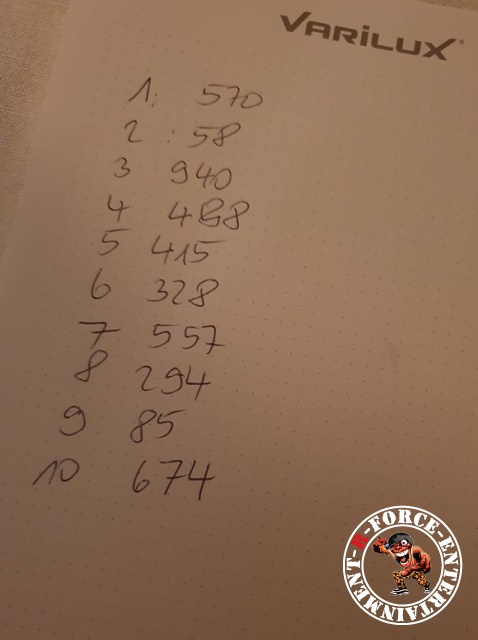 VARILUX®
1: 570
2 : 58
3 940
4 8
5 415
6 328
7 557
8 294
9 85
10 674
R-FORCE-ENTERTAINMENT-